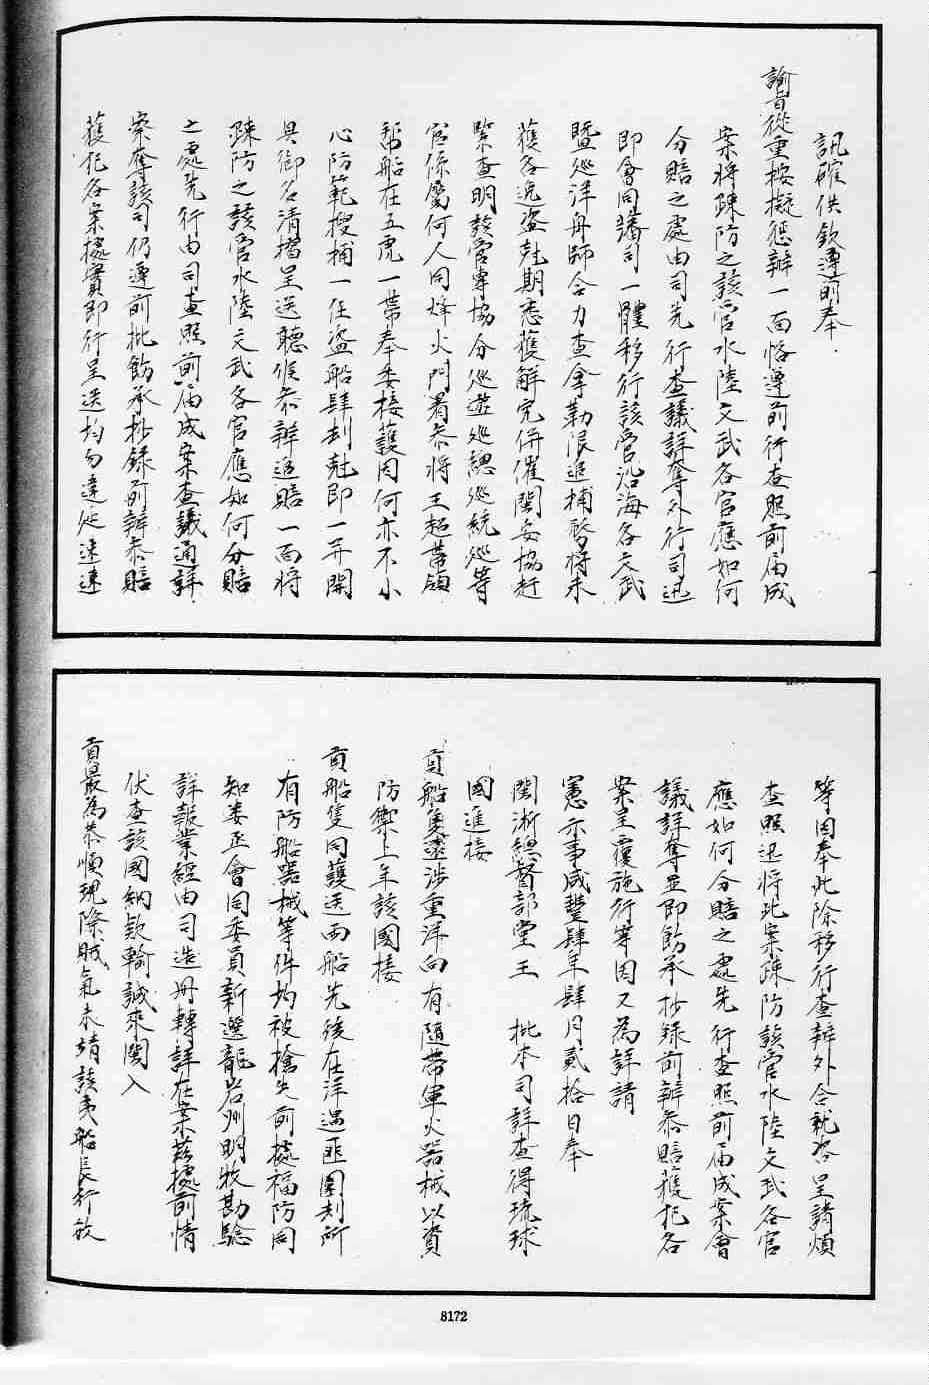 訊確供欽遵前奉
諭旨從重按擬懲辦一面恪遵前行查照前届成
案將疎防之該管水陸文武各官應如何
分賠之處由司先行查議詳奪外行司迅
即會同藩司一體移行該管沿海各文武
暨巡洋舟師合力查拿勒限追捕務將未
獲各逸盗尅期悉獲解究併催閩安協赶
緊查明該管專協分巡遊巡總巡統巡等
官係屬何人同烽火門署叅將王超帶領
帮船在五虎一帶奉委接護因何亦不小
心防範搜捕一任盗船肆刦尅即一并開
具御名清摺呈送聽候叅辦追賠一面將
疎防之該管水陸文武各官應如何分賠
之處先行由司查照前届成案查議通詳
察奪該司仍遵前批飭承抄錄前辦叅賠
獲犯各案據實即行呈送均勿違延速速
等因奉此除移行查辦外合就咨呈請煩
查照迅將此案疎防該管水陸文武各官
應如何分賠之處先行查照前届成案會
議詳奪並即飭承抄錄前辦叅賠獲犯各
案呈覆施行等因又為詳請
憲示事咸豐肆年肆月貳拾日奉
閩浙總督部堂王 批本司詳查得琉球
國進接
貢船隻遠涉重洋向有隨帶軍火器械以資
防禦上年該國接
貢船隻同護送两船先後在洋遇匪圍刦所
有防船器械等件均被搶失前據福防同
知婁丞會同委員新選龍岩州明牧勘驗
詳報業經由司造册轉詳在案茲據前情
伏查該國納款輸誠來閩入
貢最為恭順現際賊氣未靖該夷船長行放
8172